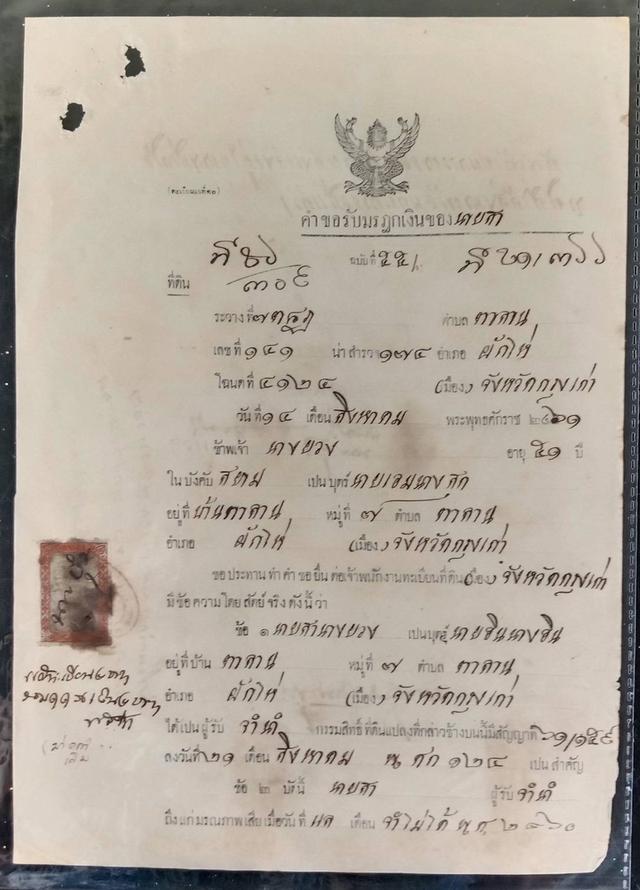 (ทะเบียนเลขที่๑๐)
คำขอรับมรฎกเงินของนายสา
ฉบับที่ ๕๕
๓๐๙
ที่ดิน
ระวางที่ ตำบล ตาลาน
เลขที่ ๑๔๑ น่าสำรวจ ๑๗๔ อำเภอ ผักไห่
โฉนดที่ ๔๑๒๔ (เมือง) จังหวัดกรุงเก่า
วันที่ ๑๔ เดือน สิงหาคม พระพุทธศักราช ๒๔๖๑
ข้าพเจ้า นางบวง อายุ ๕๑ ปี
ในบังคับ สยาม เปนบุตร์ นายเอมนางศุก
อยู่ที่ บ้านตาลาน หมู่ที่ ๗ ตำบล ตาลาน
อำเภอ ผักไห่ (เมือง) จังหวัดกรุงเก่า
ขอประทานทำคำขอยื่นต่อเจ้าพนักงานทะเบียนที่ดิน (เมือง) จังหวัดกรุงเก่า
มีข้อความโดยสัตย์จริงดังนี้ว่า
ข้อ ๑ นายสานางบวง เปนบุตร์ นายอินนางอิน
อยู่ที่บ้าน ตาลาน หมู่ที่ ๗ ตำบล ตาลาน
อำเภอ ผักไห่ (เมือง) จังหวัดกรุงเก่า
ได้เปนผู้รับ จำนำ กรรมสิทธิ์ที่ดินแปลงที่กล่าวข้างบนนี้มีสัญญาที่ ๖๑/๑๕๙
ลงวันที่ ๒๑ เดือน สิงหาคม ร,ศก ๑๒๔ เปนสำคัญ
ข้อ ๒ บัดนี้ นายสา ผู้รับ จำนำ
ถึงแก่มรณภาพเสียเมื่อวันที่ แล เดือน จำไม่ได้ พ,ศ, ๒๔๖๐